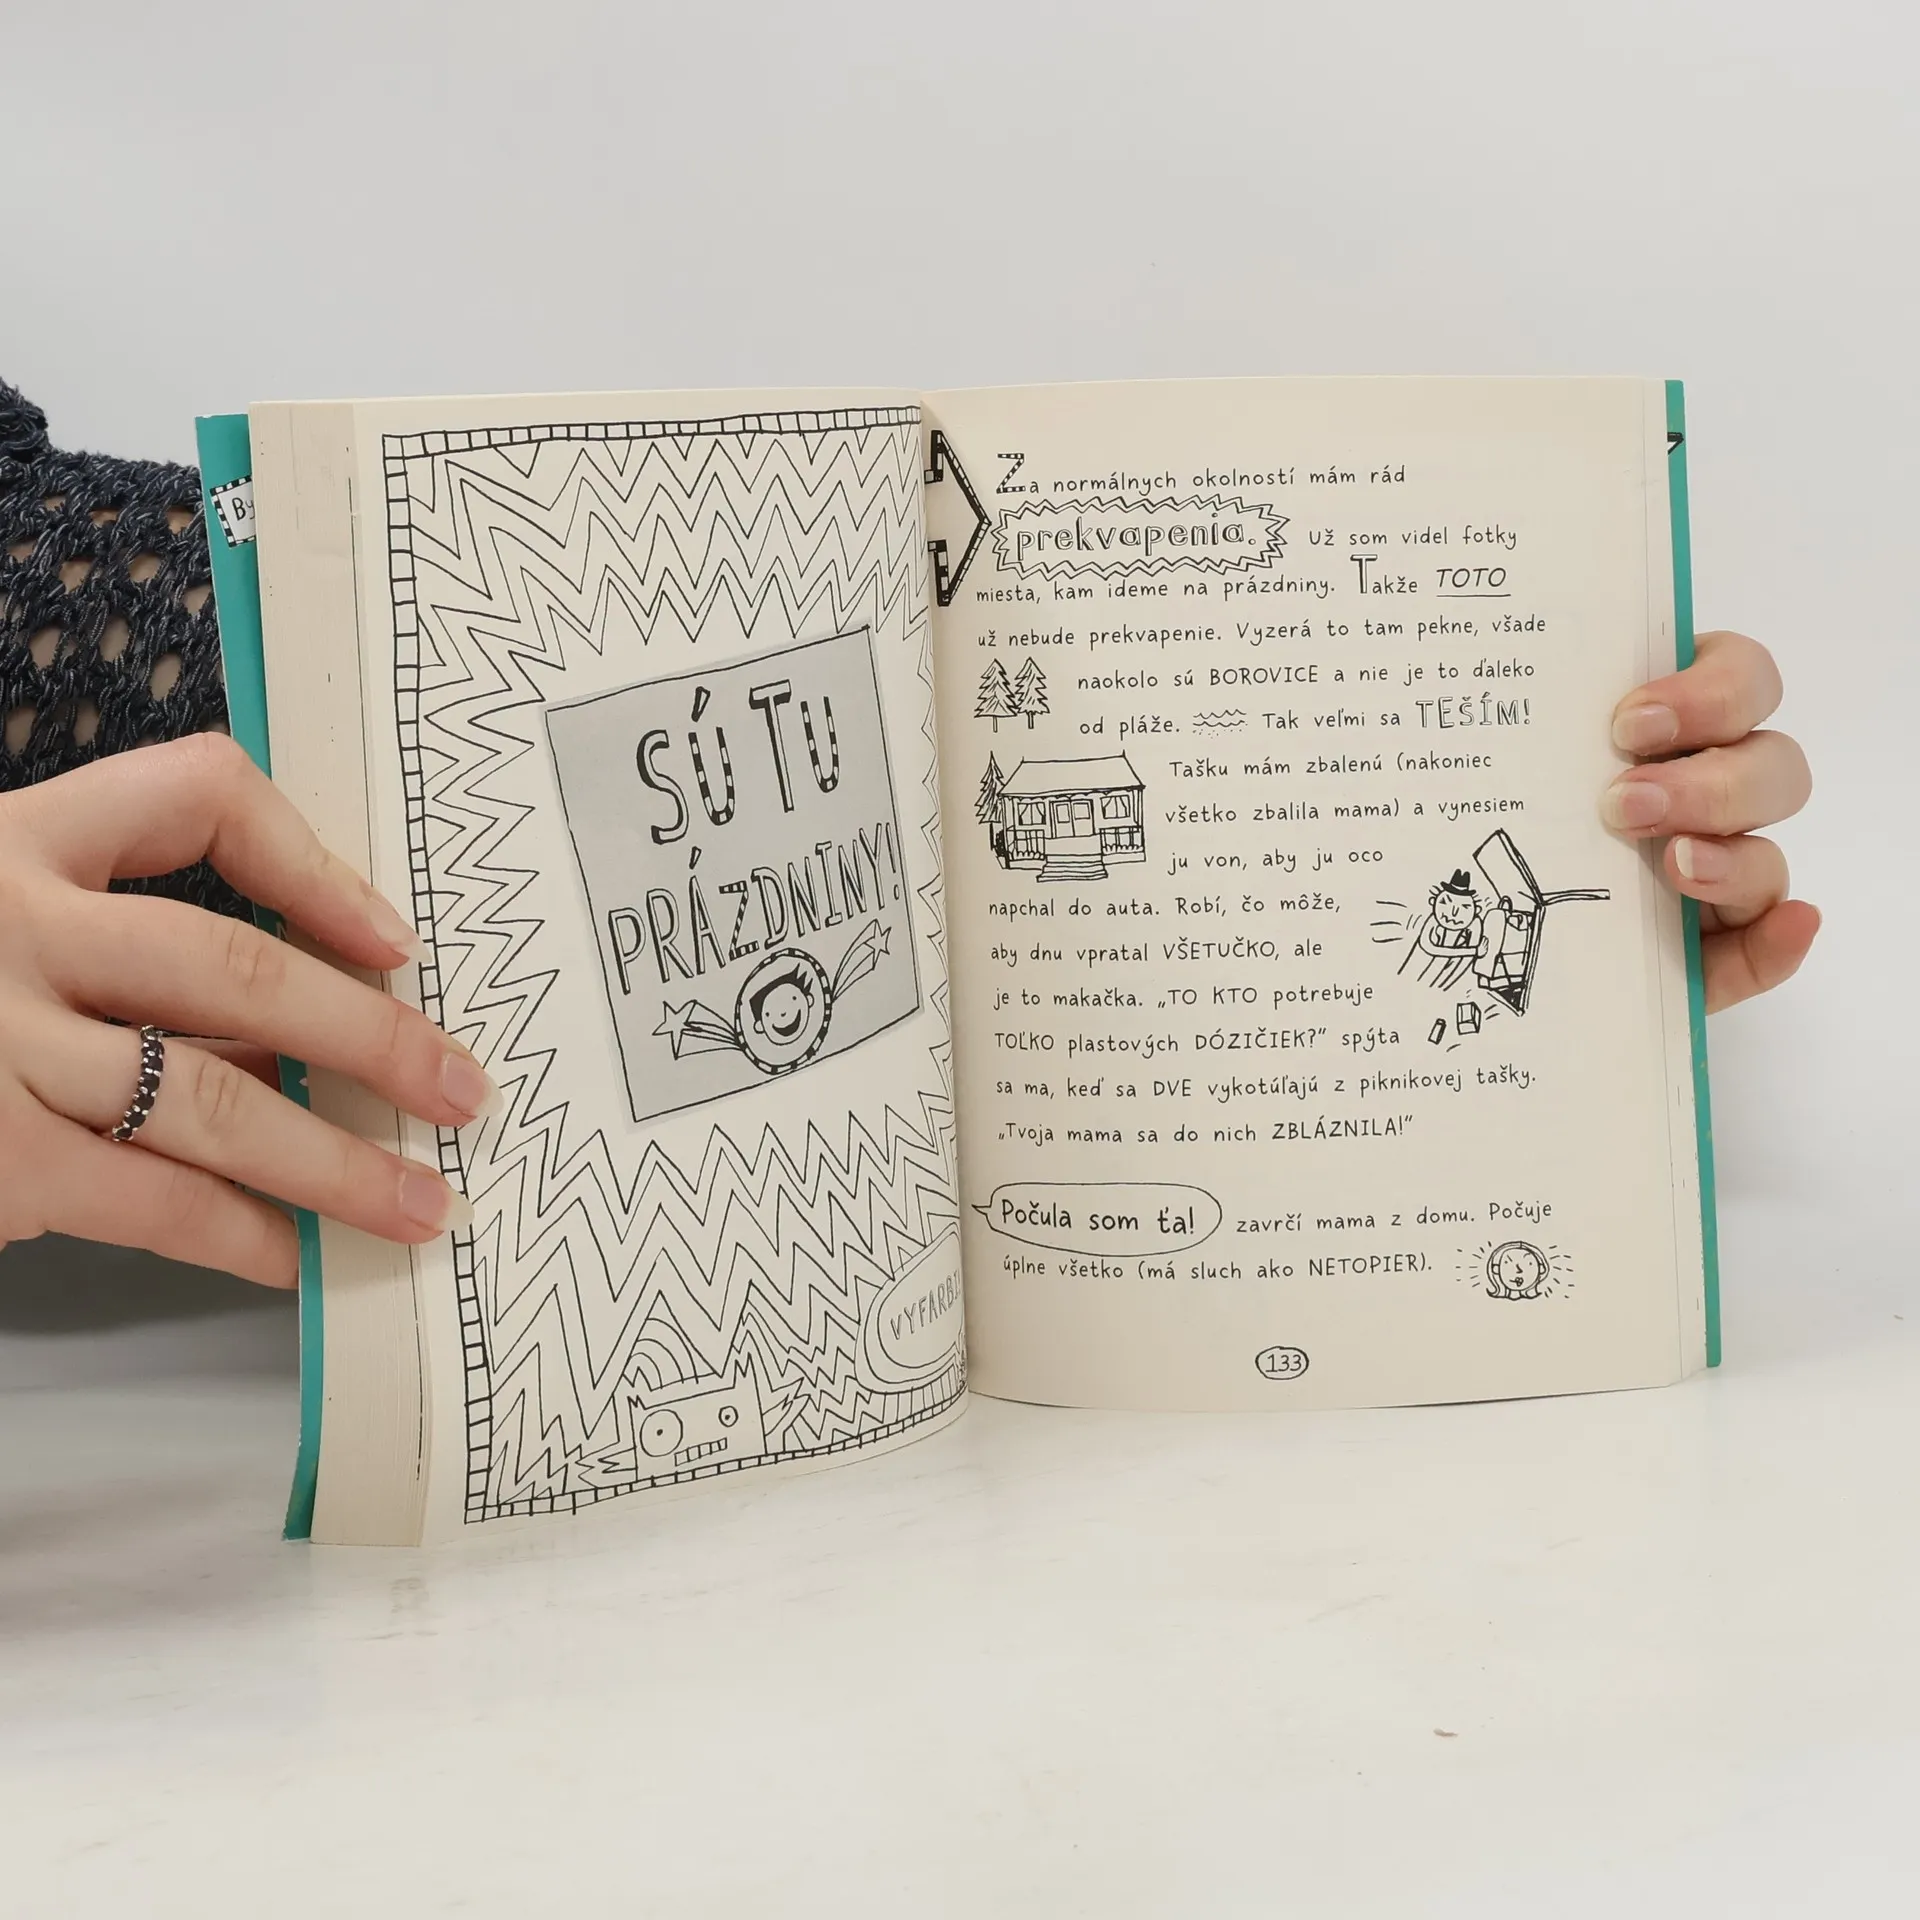 By
SÚ TU
PRÁZDNINY!
Za normálnych okolností mám rád
prekvapenia. Už som videl fotky
miesta, kam ideme na prázdniny. Takže TOTO
už nebude prekvapenie. Vyzerá to tam pekne, všade
naokolo sú BOROVICE a nie je to ďaleko
od pláže. Tak veľmi sa TEŠÍM!
Tašku mám zbalenú (nakoniec
všetko zbalila mama) a vynesiem
ju von, aby ju oco
napchal do auta. Robí, čo môže,
aby dnu vpratal VŠETUČKO, ale
je to makačka. „TO KTO potrebuje
TOĽKO plastových DÓZIČIEK?“ spýta
sa ma, keď sa DVE vykotúľajú z piknikovej tašky.
„Tvoja mama sa do nich ZBLÁZNILA!“
Počula som ťa! zavrčí mama z domu. Počuje
úplne všetko (má sluch ako NETOPIER).
133